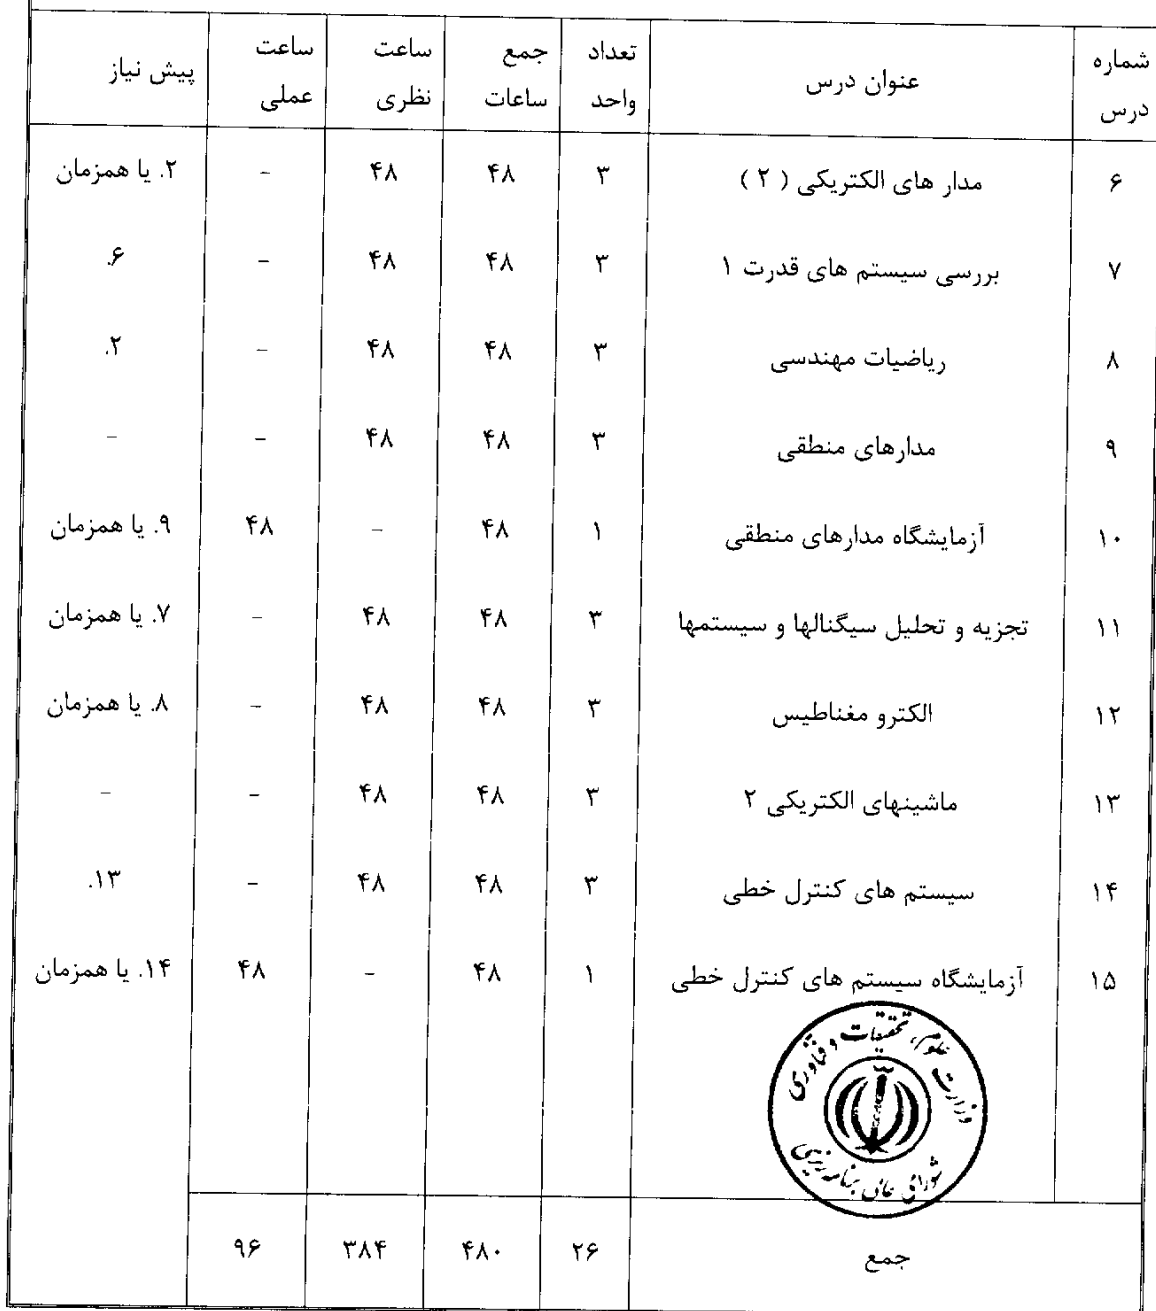 شماره درس	عنوان درس	تعداد واحد	جمع ساعات	ساعت نظری	ساعت عملی	پیش نیاز
۶	مدار های الکتریکی ( ۲ )	۳	۴۸	۴۸	-	۲. یا همزمان
۷	بررسی سیستم های قدرت ۱	۳	۴۸	۴۸	-	۶.
۸	ریاضیات مهندسی	۳	۴۸	۴۸	-	۲.
۹	مدارهای منطقی	۳	۴۸	۴۸	-	-
۱۰	آزمایشگاه مدارهای منطقی	۱	۴۸	-	۴۸	۹. یا همزمان
۱۱	تجزیه و تحلیل سیگنالها و سیستمها	۳	۴۸	۴۸	-	۷. یا همزمان
۱۲	الکترو مغناطیس	۳	۴۸	۴۸	-	۸. یا همزمان
۱۳	ماشینهای الکتریکی ۲	۳	۴۸	۴۸	-	-
۱۴	سیستم های کنترل خطی	۳	۴۸	۴۸	-	۱۳.
۱۵	آزمایشگاه سیستم های کنترل خطی	۱	۴۸	-	۴۸	۱۴. یا همزمان
وزارت علوم، تحقیقات و فناوری
شورای عالی برنامه ریزی
جمع	۲۶	۴۸۰	۳۸۴	۹۶